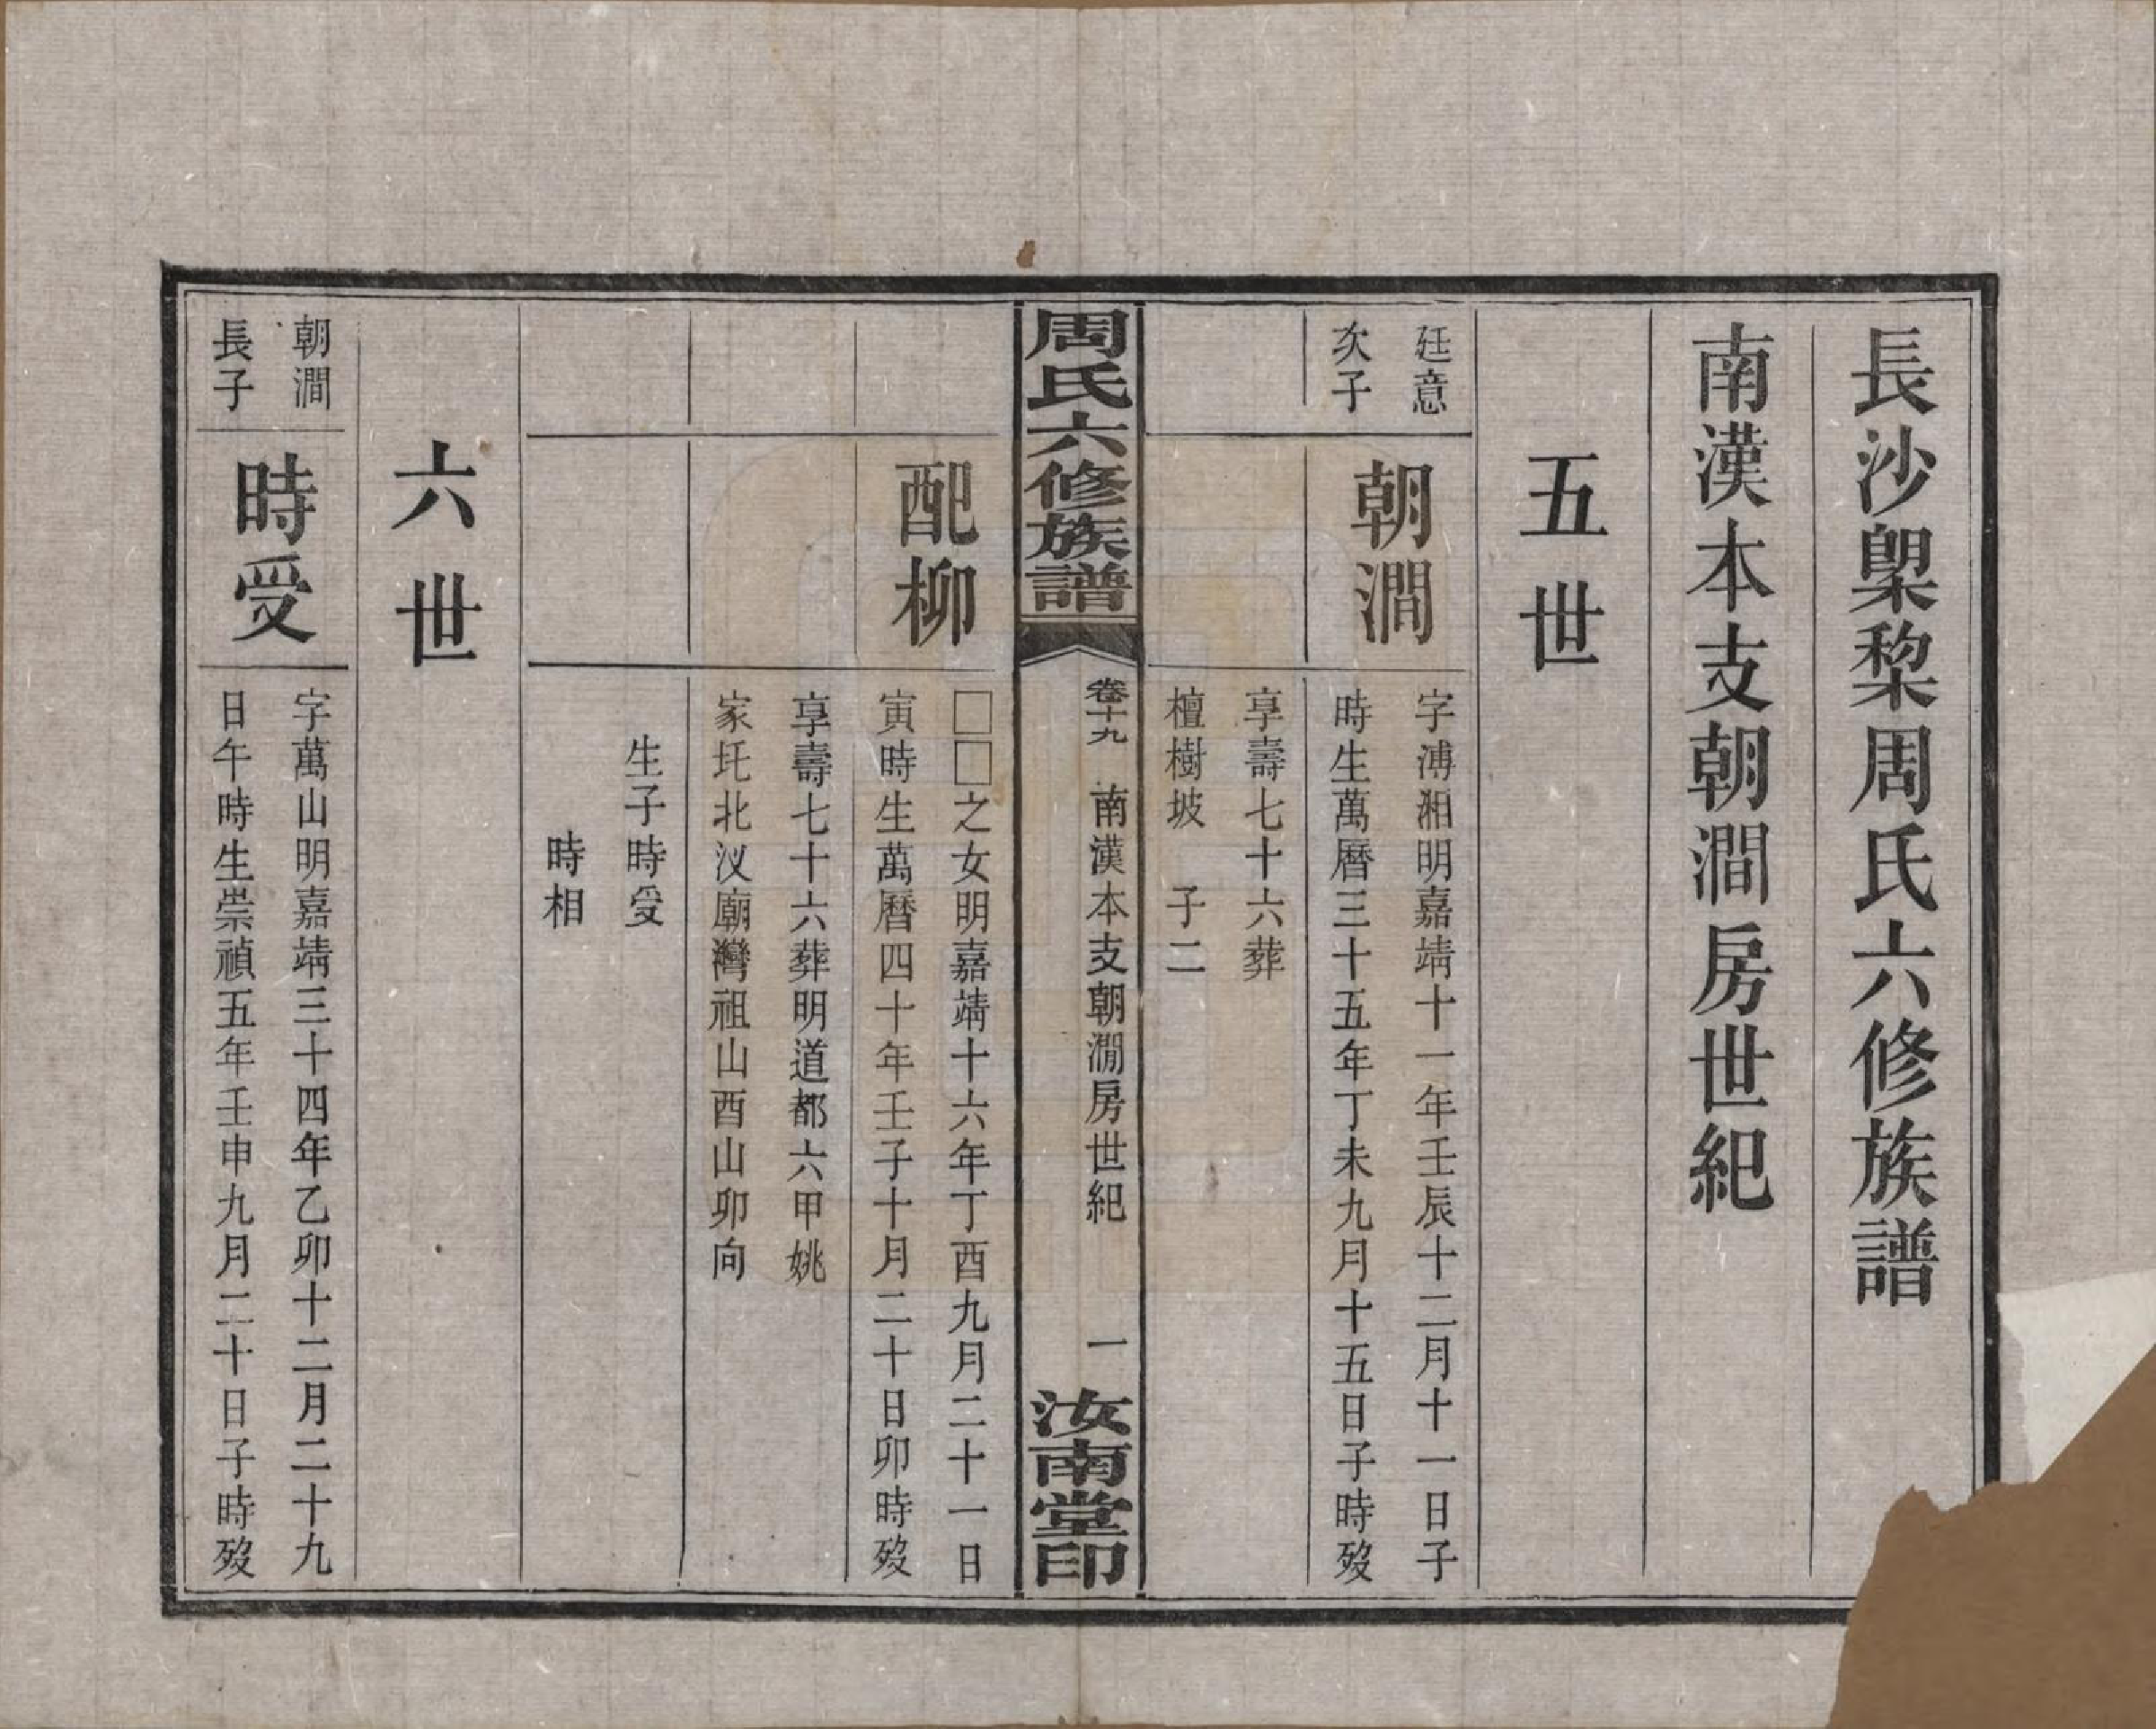 長沙㮚棃周氏六修族譜
南漢本支朝澗房世紀
五世
廷意
次子
朝澗
字溥湘明嘉靖十一年壬辰十二月十一日子
時生萬曆三十五年丁未九月十五日子時歿
享壽七十六葬
檀樹坡　子二
周氏六修族譜
卷十九　南漢本支朝澗房世紀　一
汝南堂印
配柳
□□之女明嘉靖十六年丁酉九月二十一日
寅時生萬曆四十年壬子十月二十日卯時歿
享壽七十六葬明道都六甲姚
家圫北汊廟灣祖山酉山卯向
生子時受
時相
六世
朝澗
長子
時受
字萬山明嘉靖三十四年乙卯十二月二十九
日午時生崇禎五年壬申九月二十日子時歿